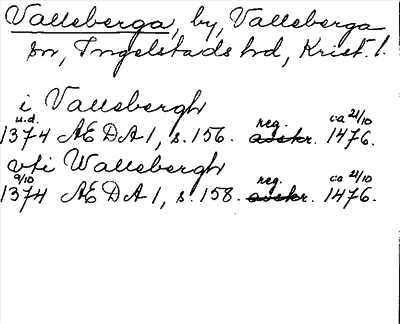 Valleberga, by, Valleberga
sn, Ingelstads hd, Krist. l.
i Vallebergh
u.d. reg. ca 21/10
1374 ÆDA 1, s. 156. avskr. 1476.
vti Wallebergh
9/10 reg. ca 21/10
1374 ÆDA 1, s. 158. avskr. 1476.